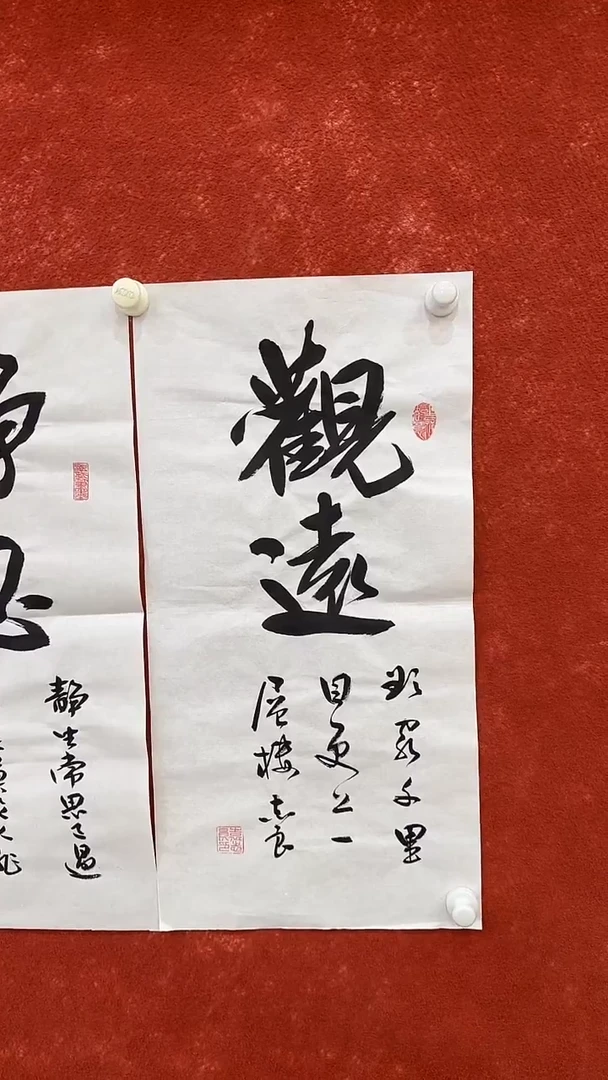 觀遠
欲窮千里
目更上一
层楼 志良
静坐常思己過